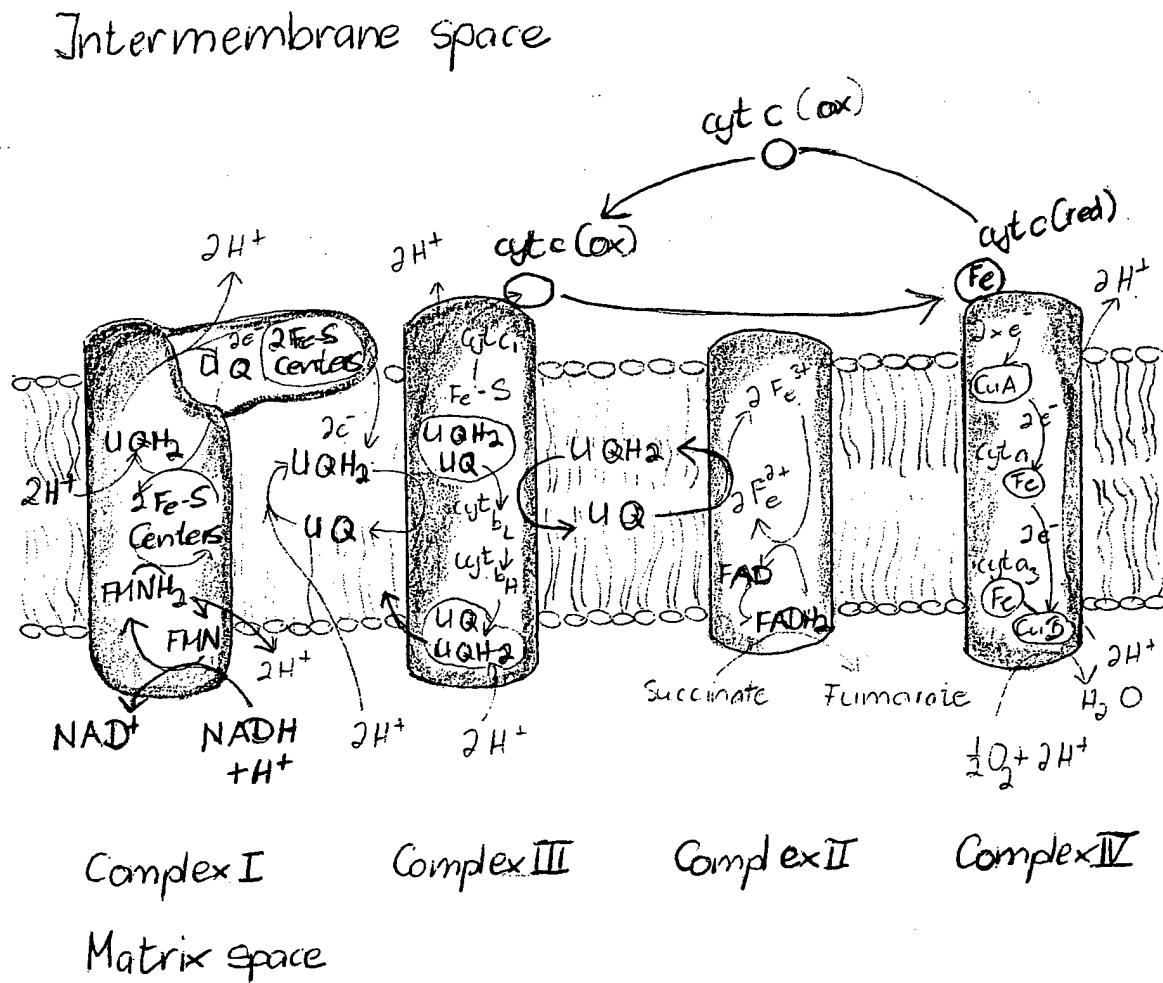 Intermembrane space
cyt c (ox)
cyt c (red)
cyt c (ox)
2H+
2H+
2H+
Fe
2e-
UQ
2Fe-S
Centers
UQH2
2H+
2Fe-S
Centers
FMNH2
FMN
2H+
NAD+
NADH
+H+
2e-
UQH2
UQ
2H+
cyt c1
Fe-S
UQH2
UQ
cyt bL
cyt bH
UQ
UQH2
2H+
UQH2
UQ
2Fe3+
2Fe2+
FAD
FADH2
Succinate
Fumarate
2xe-
CuA
2e-
cyt a
Fe
2e-
cyt a3
Fe
CuB
2H+
H2O
½O2 + 2H+
Complex I
Complex III
Complex II
Complex IV
Matrix space